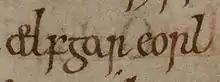 ælfgar eorl